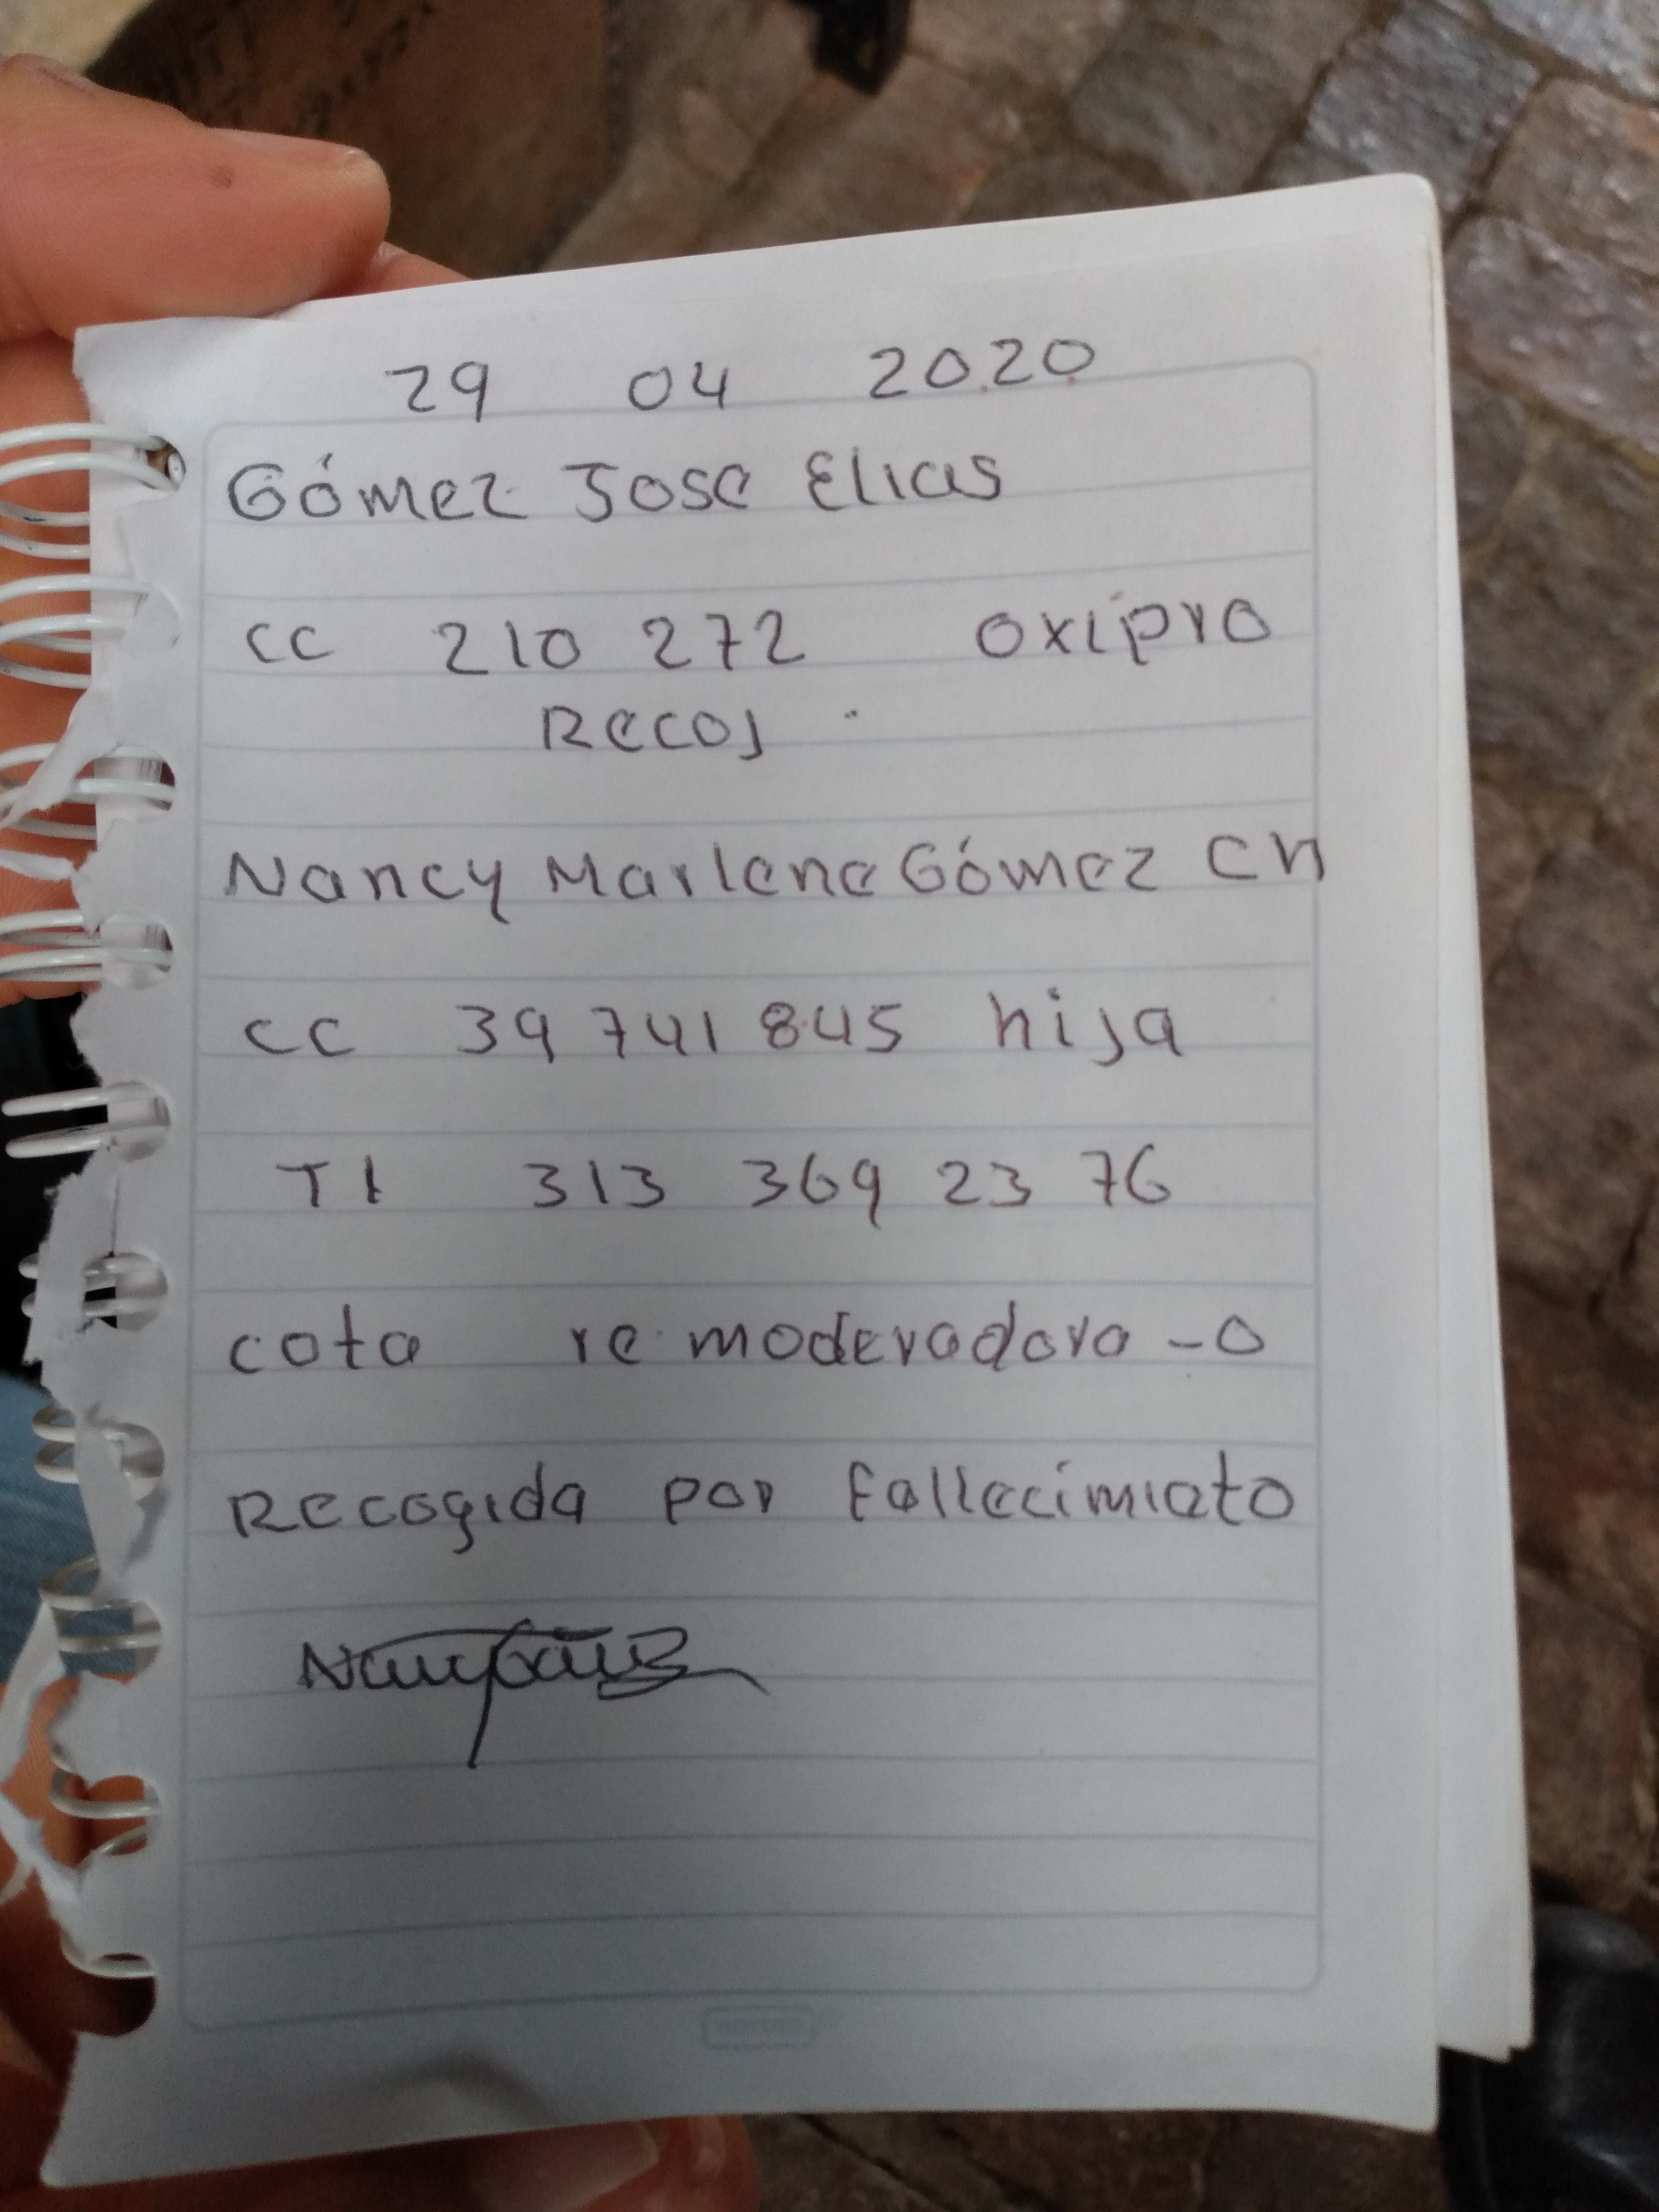 29 04 2020
Gómez Jose Elias
CC 210 272 oxipro
Recoj
Nancy Marlene Gómez Ch
CC 39 741 845 hija
Tl 313 369 23 76
cota re moderadora - 0
Recogida por fallecimieto